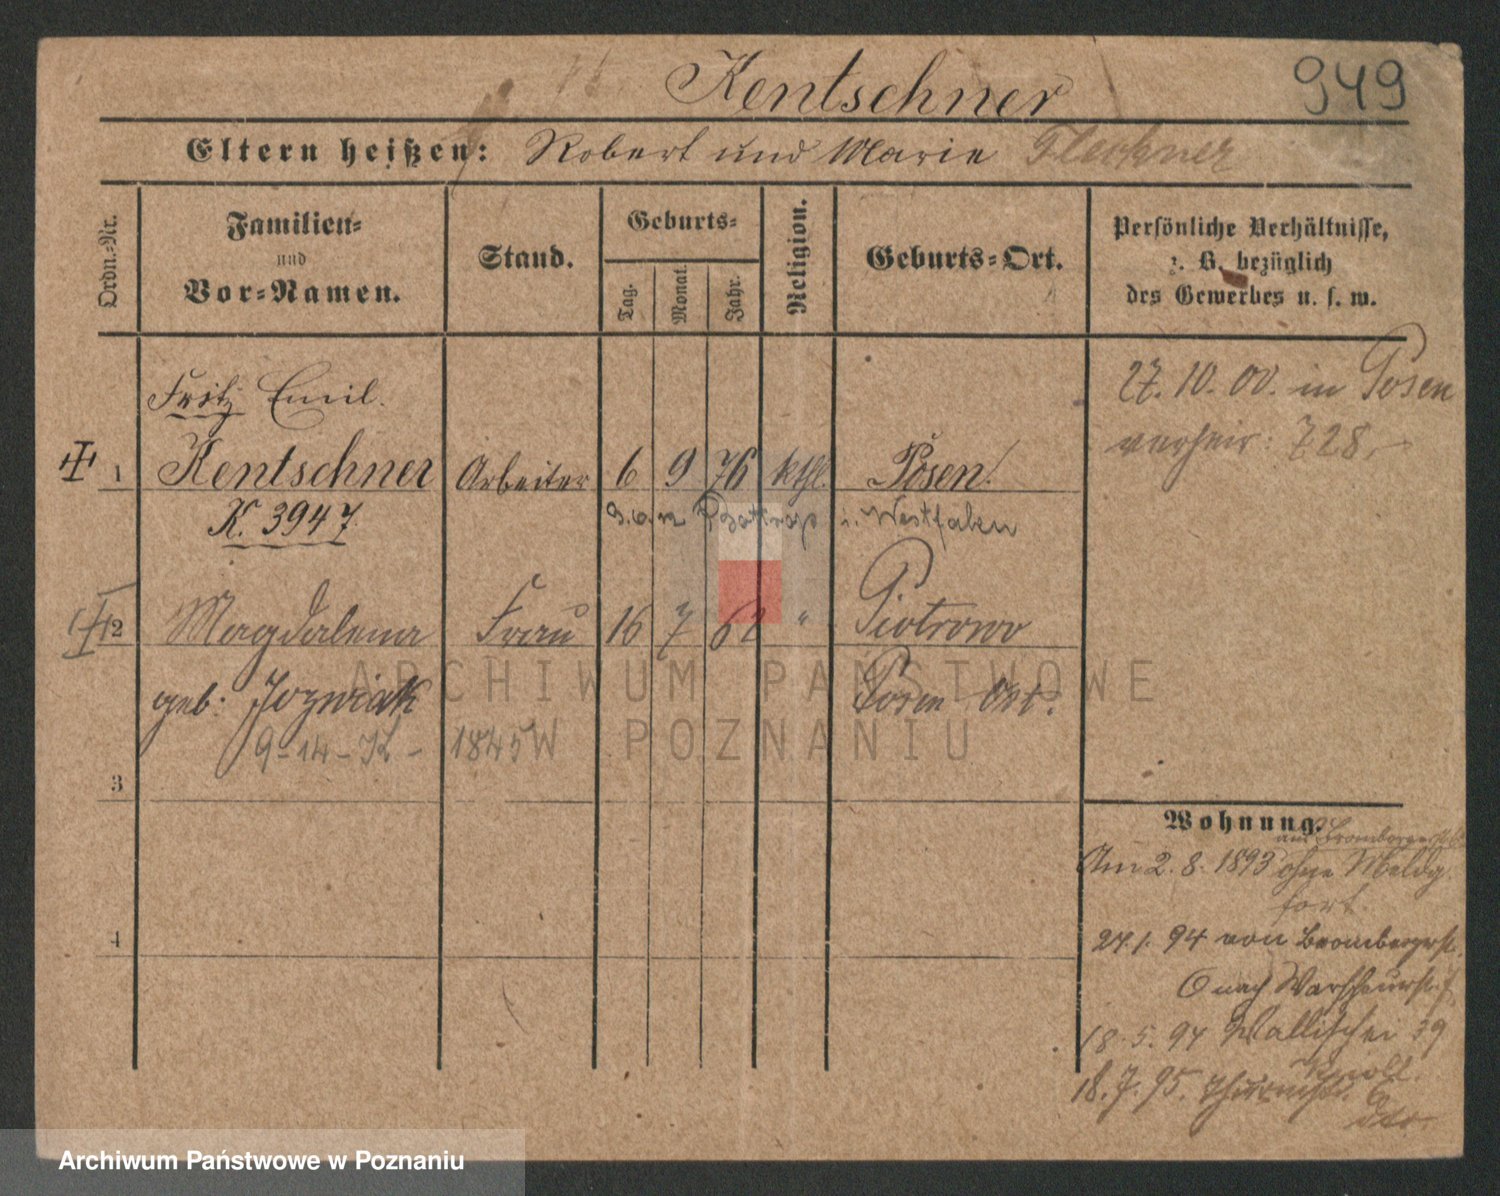 Kentschner
949
Eltern heißen: Robert und Marie Fleckner
Ordn.-Nr.
Familien- und Vor-Namen.
Stand.
Geburts-
Tag. Monat. Jahr.
Religion.
Geburts-Ort.
Persönliche Verhältnisse,
z. B. bezüglich
des Gewerbes u. s. w.
27. 10. 00. in Posen
verheir: 728
Fritz Emil.
1 Kentschner Arbeiter 6 9 76 kthl. Posen
K. 3947
i. Westfalen
2 Magdalena Frau 16 7 62 " Piotrowo
geb: Jozwiak Posen Ost.
9-14-K- 1845
3
4
Wohnung.
Am 2. 8. 1893 ohne Meldg.
fort.
24.1. 94 von Brombergerst.
nach Warschauerst.
18. 5. 94 Wallischei 39
18. 7. 95.
ARCHIWUM PAŃSTWOWE
W POZNANIU
Archiwum Państwowe w Poznaniu